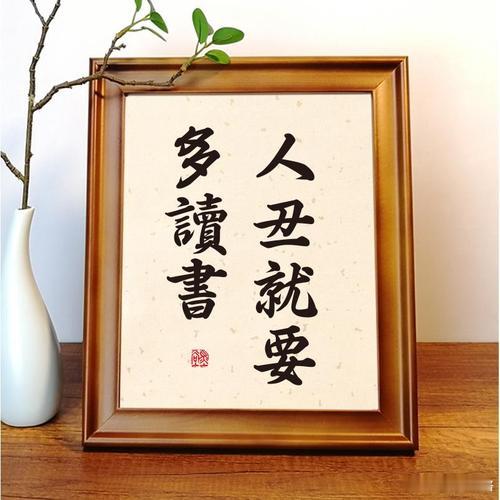 人丑就要
多讀書